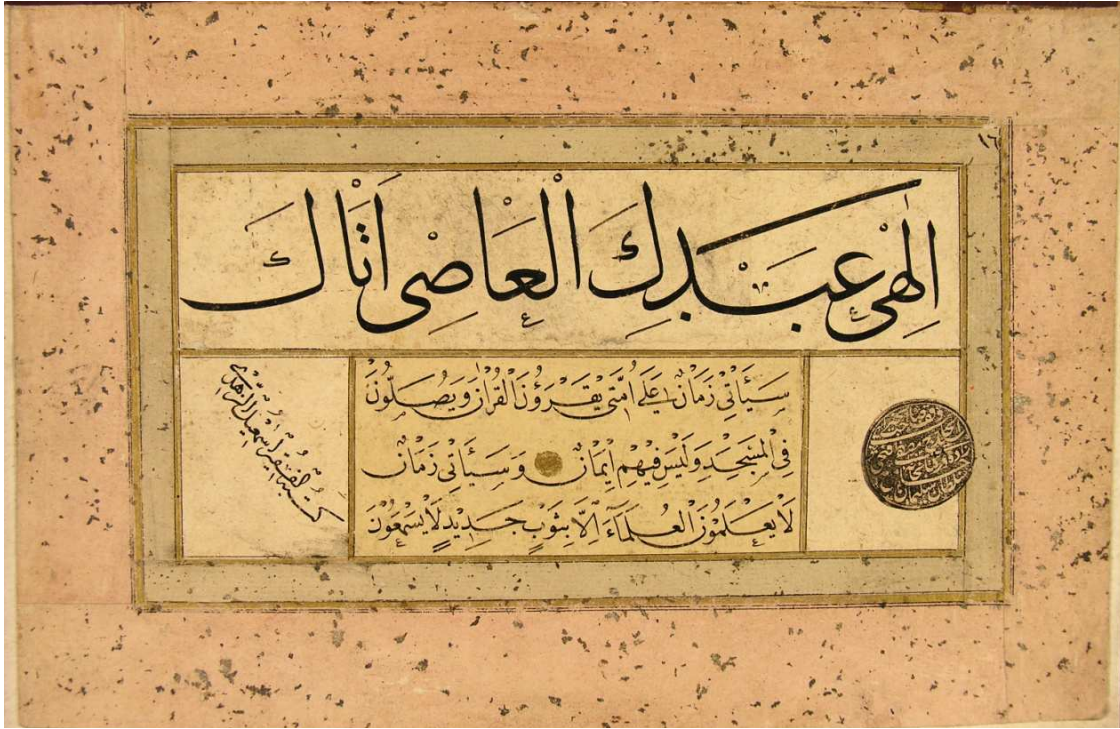 ١٦
اِلٰهِى عَبْدُكَ الْعَاصِى اَتَاكَ
سَيَأْتِى زَمَانٌ عَلَى اُمَّتِى يَقْرَؤُنَ الْقُرْاٰنَ وَيُصَلُّونَ
فِى الْمَسْجِدِ وَلَيْسَ فِيهِمْ اِيْمَانٌ وَسَيَأْتِى زَمَانٌ
لَا يَعْلَمُونَ الْعُلَمَآءَ اِلَّا بِثَوْبٍ جَدِيْدٍ لَا يَسْمَعُونَ
كتبه الفقير اسمعيل الزهدى